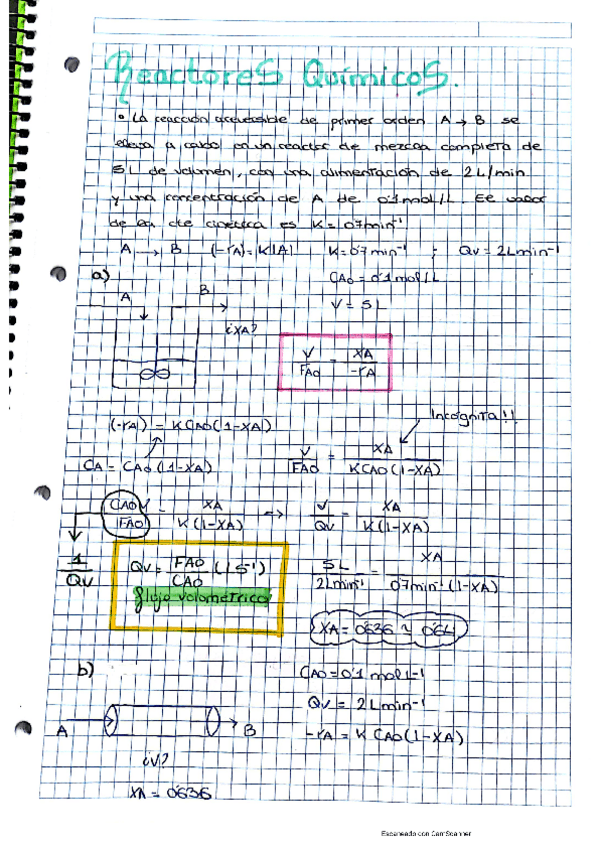 Reactores Químicos.
• La reacción irreversible de primer orden A → B se
lleva a cabo en un reactor de mezcla completa de
5L de volumen, con una alimentación de 2L/min
y una concentración de A de 0'1 mol/L. El valor
de la cte cinética es K = 0'7 min⁻¹
A → B (-rA) = K|A| K = 0'7 min⁻¹ ; Qv = 2L min⁻¹
a) CA0 = 0'1 mol/L
A B V = 5L
¿XA?
V/FA0 = XA/-rA
(-rA) = K CA0 (1-XA) Incógnita!!
CA = CA0 (1-XA) V/FA0 = XA/K CA0 (1-XA)
CA0 V/FA0 = XA/K(1-XA) → V/Qv = XA/K(1-XA)
1/Qv Qv = FA0/CA0 (l s⁻¹) 5L/2L min⁻¹ = XA/0'7 min⁻¹ (1-XA)
flujo volumétrico
XA = 0'636 ≈ 0'64
b) CA0 = 0'1 mol l⁻¹
Qv = 2L min⁻¹
A B -rA = K CA0 (1-XA)
¿V?
XA = 0'636
Escaneado con CamScanner